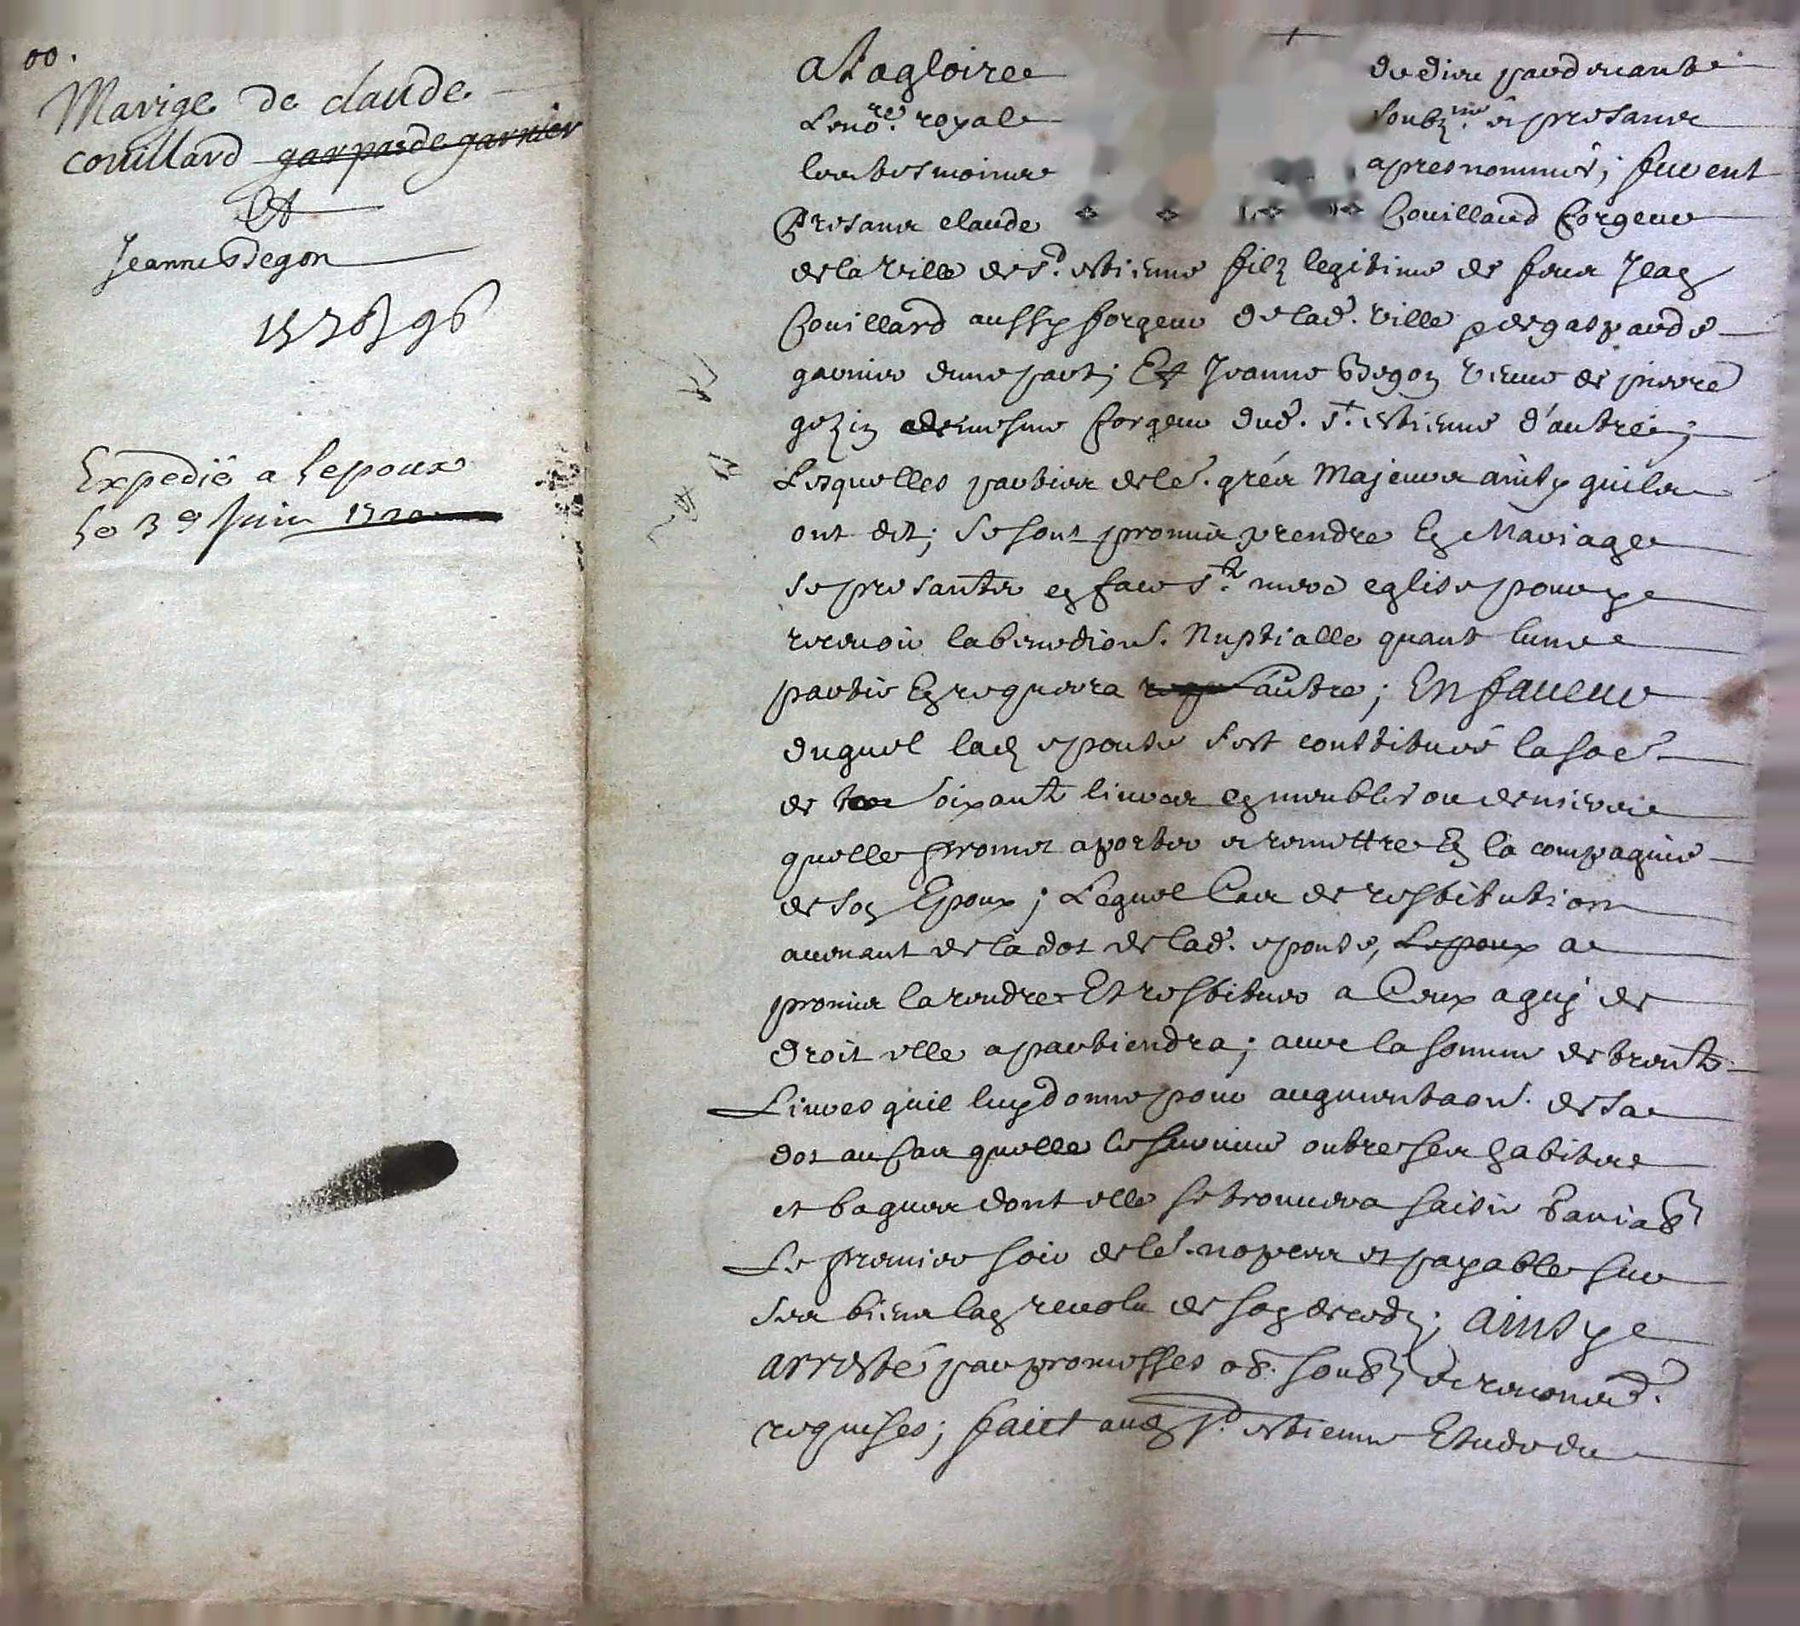 00.
Marige de claude
couillard garpasde garnier
Et
Jeanne Begon
Expedié a Lepoux
Le 3e Juin
A la gloire de dieu pardevant
Le nore. royal soubzne. et presans
les tesmoins apres nommés; furent
Presans claude Couillard forgeur
de la Ville de St. estienne filz legitime de feux Jean
Couillard aussy forgeur de lad. ville et de gasparde
garnier d'une part; Et Jeanne Begon veuve de pierre
gezin de mesme forgeur dud. St. estienne d'autre;
Lesquelles parties de le. grés Majeurs ainsy quils
ont dit; se sont promis prendre En Mariage
se presanter en face Ste. mere eglise pour y
recevoir la benedion. Nuptialle quant lune
partie En requerra l'autre; En faveur
duquel lad. epouse s'est constitueé la soe.
de soixante livres en meubles ou denrées
quelle promet aporter et remettre En la compagnie
de son Epoux; Lequel Cas de restitution
avenant de la dot de lad. epouse, Lepoux a
promis la rendre Et restituer a Ceux a quy de
droit elle apartiendra; avec la somme de trente
Livres quil luy donne pour augmentaon. de sa
dot au cas quelle le survive outre ses habits
et bagues dont elle se trouvera saisie
Le premier soir de le. nopces et payable sur
ses biens lan revolu de son deceds; Ainsy
arresté par promesses ob. soub.
requises; faict aud. St. estienne Etude du